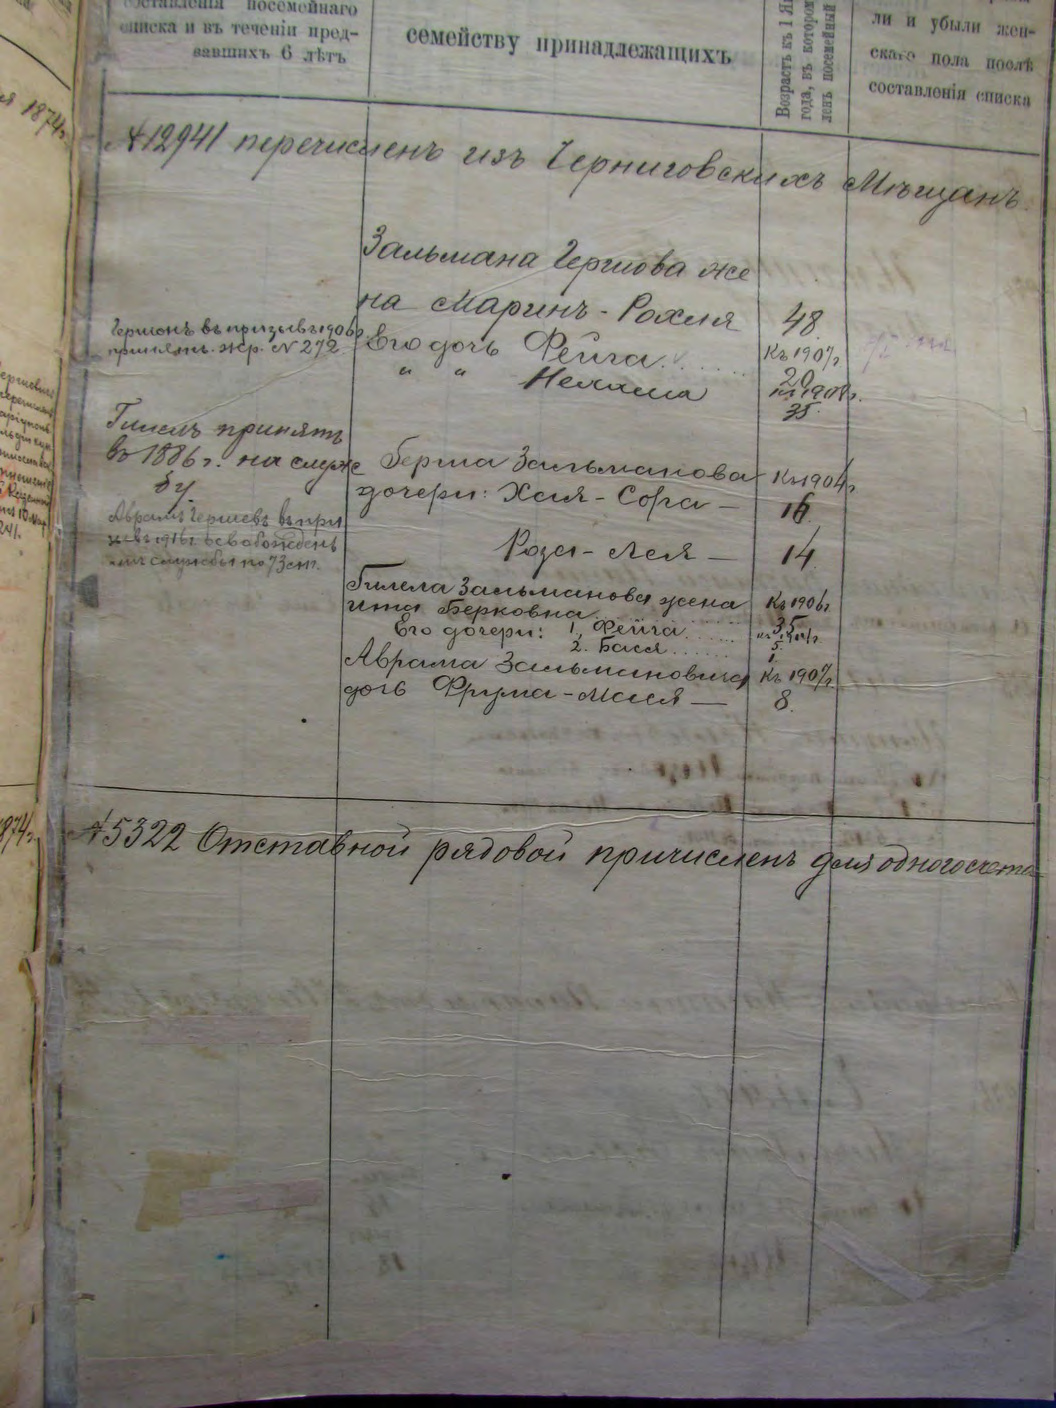 составленія посемейнаго
списка и въ теченіи пред-
вавшихъ 6 лѣтъ
семейству принадлежащихъ
Возрастъ къ 1 Ян
года, въ котором
ленъ посемейный
ли и убыли жен-
скаго пола послѣ
составленія списка
1874г.
№ 12941 перечисленъ изъ Черниговскихъ Мѣщанъ.
Зальмана Гершова же
на Маринъ-Рохля 48
Гершонъ въ призывъ 1906г.
принятъ. жр. № 272
Его дочь Фейга к 1907г
20
" " Нехама к 1908г.
35
Гилель принятъ
въ 1886г. на служ
бу
Берша Зальманова к 1904г
дочери: Хая-Сора — 16
Аврамъ Гершевъ въ при
зывъ 1916г освобожденъ
отъ службы по 73 ст.
Роза-Лея — 14
Гилела Зальманова жена Къ 1906г
Ита Берковна 35
Его дочери: 1, Фейга
5
2. Бася
1
Аврама Зальмановича Къ 1907г.
дочь Фрума-Мася — 8.
1874г.
№ 5322 Отставной рядовой причисленъ для одного счета